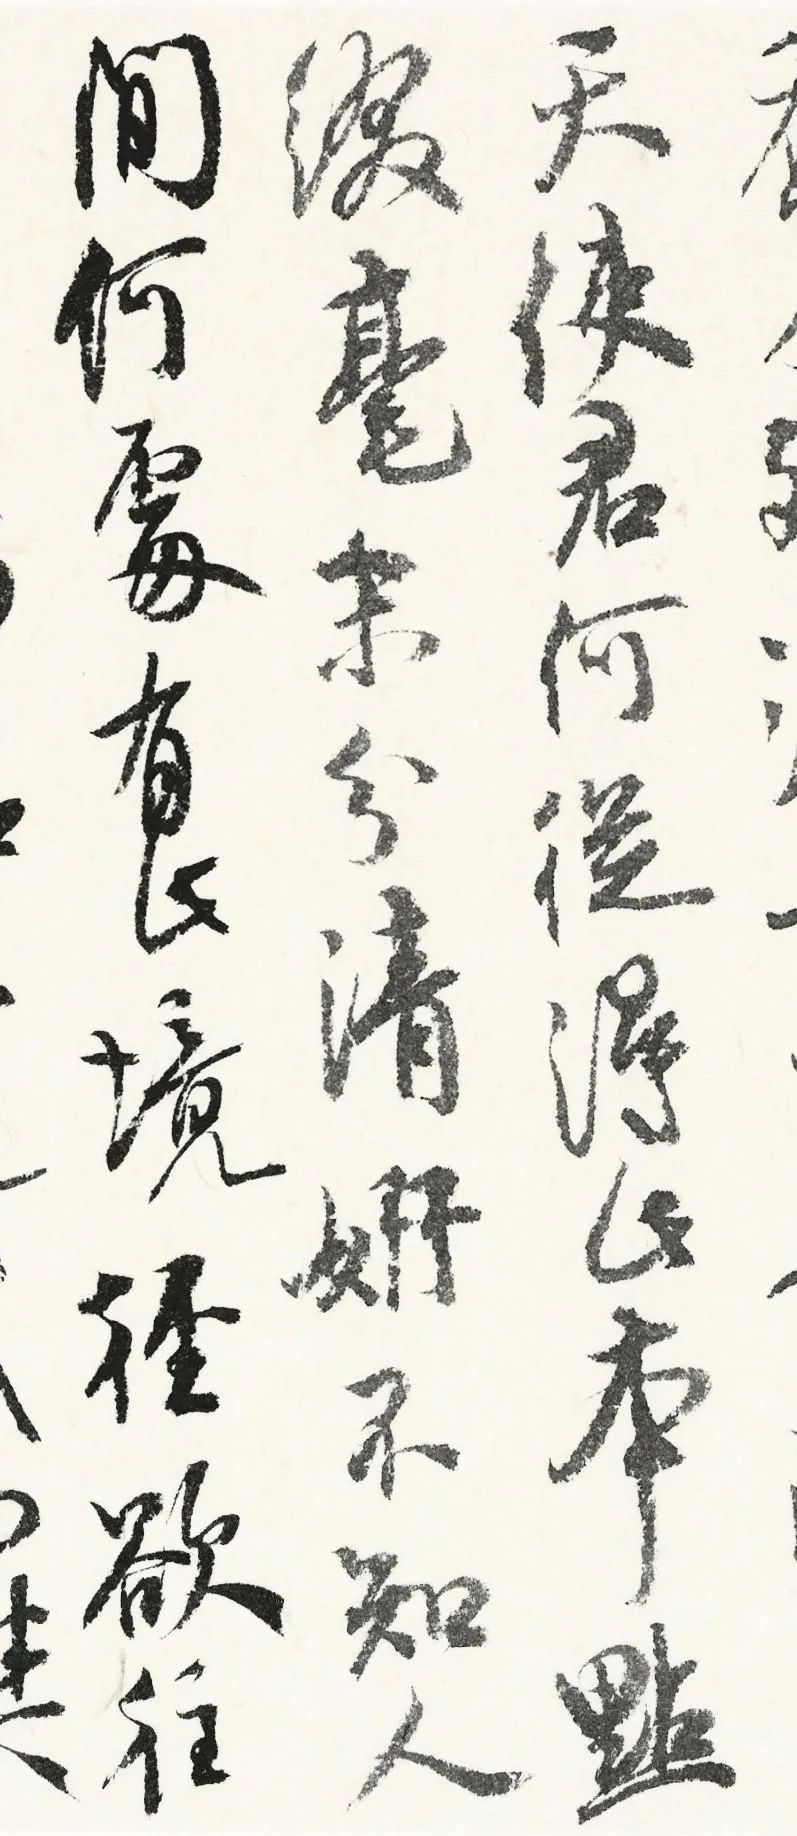 天使君何從得此本點
綴毫末分清妍不知人
間何處有此境徑欲往